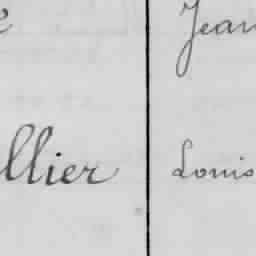 e Jean
llier Louis